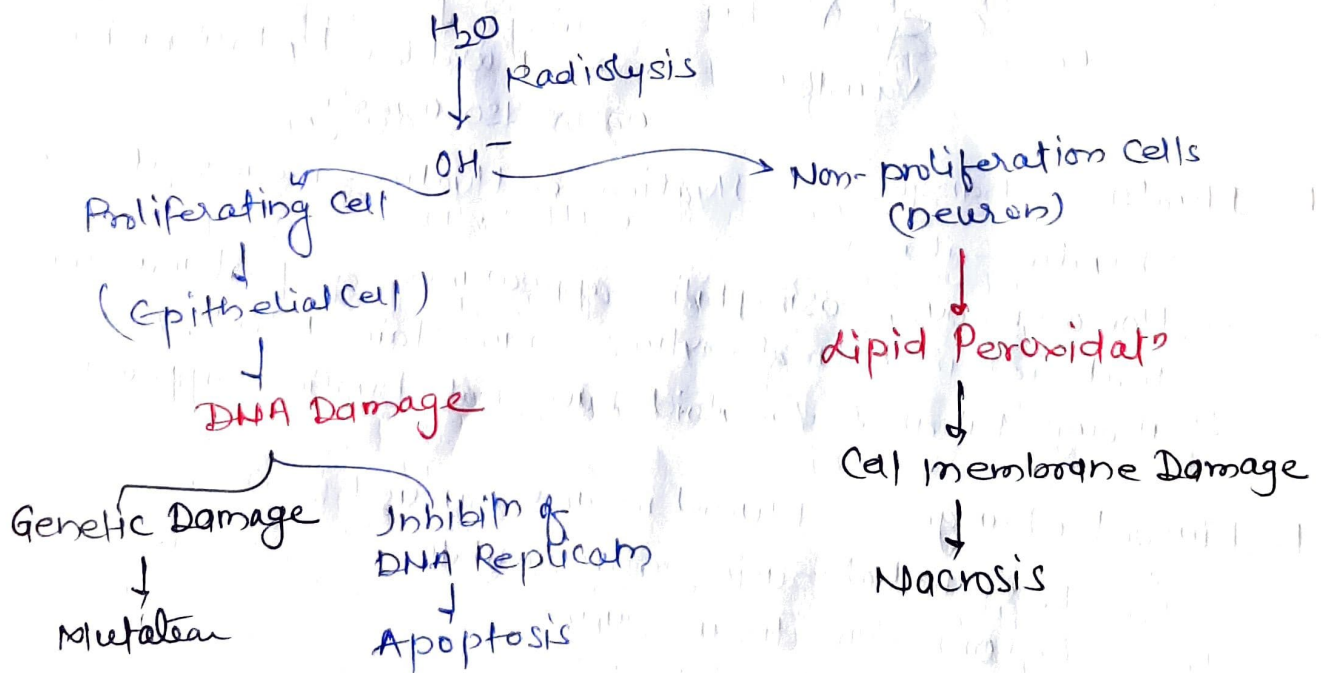 H₂O
Radiolysis
OH⁻
Proliferating Cell
(Epithelial Cell)
DNA Damage
Genetic Damage
Mutation
Inhibitn of
DNA Replicatn
Apoptosis
Non-proliferation Cells
(neuron)
Lipid Peroxidatn
Cell membrane Damage
Nacrosis